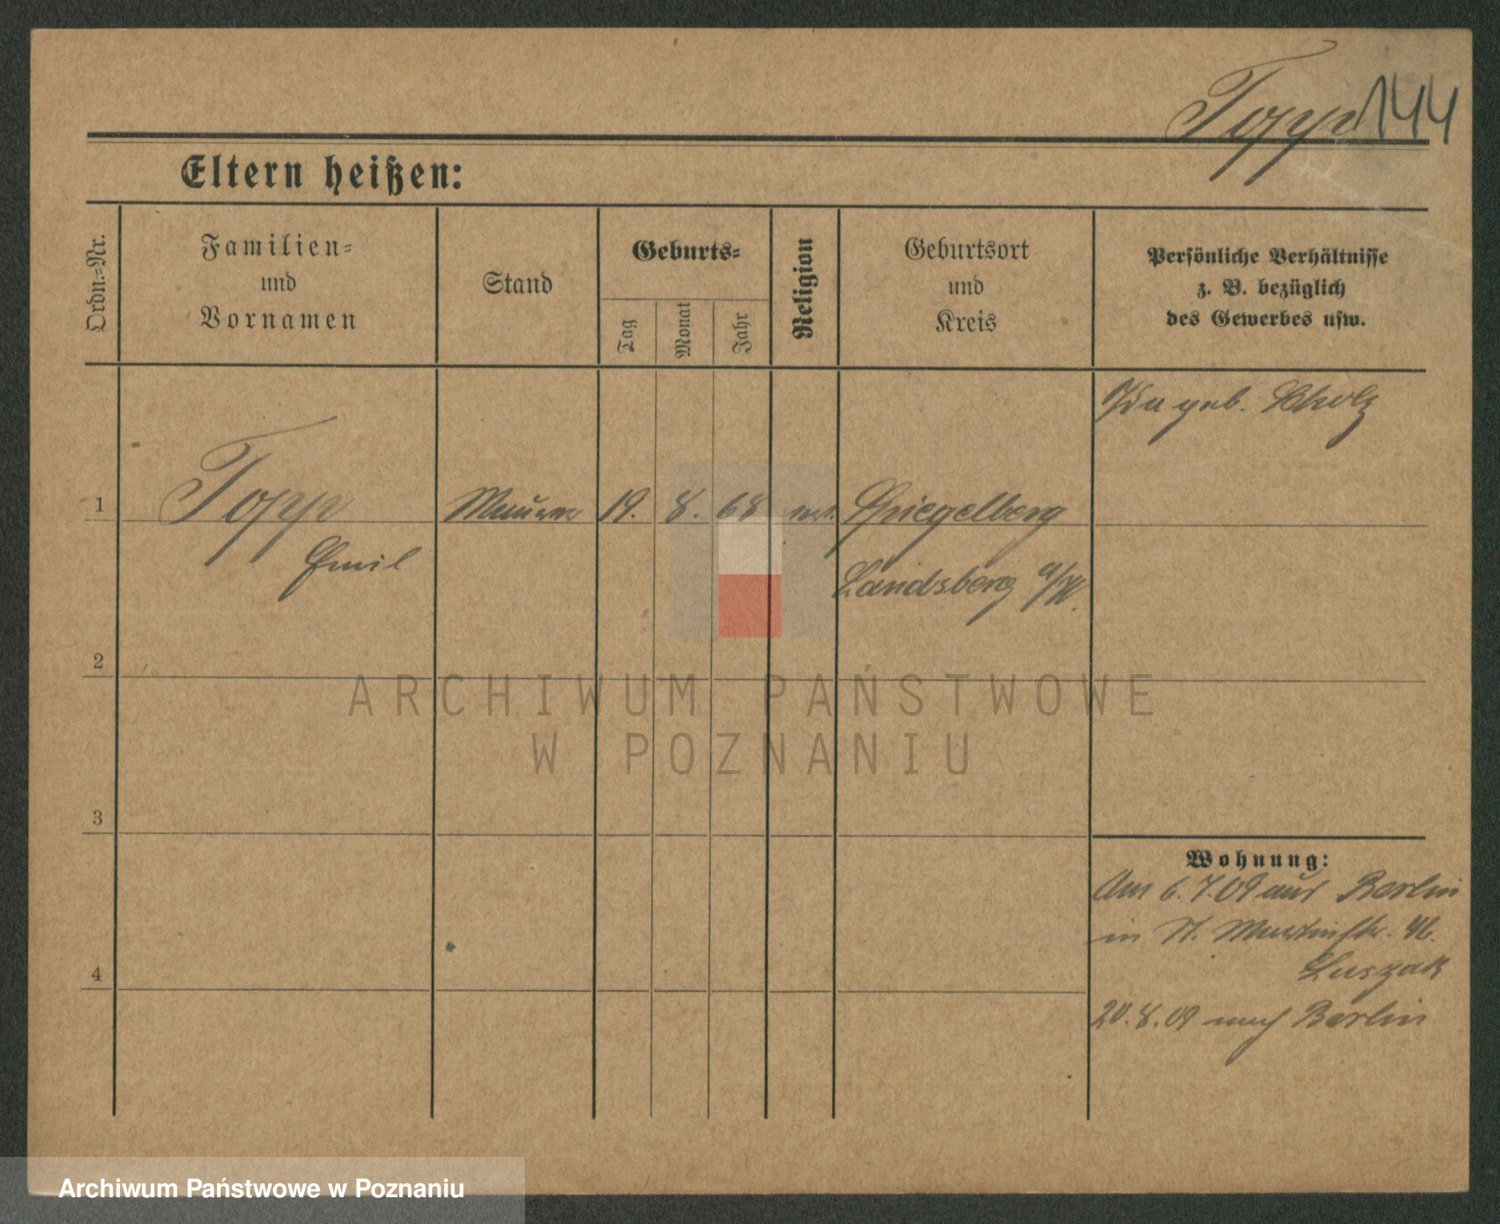 Topp 144
Eltern heißen:
Ordn.=Nr.
Familien=
und
Vornamen
Stand
Geburts=
Tag
Monat
Jahr
Religion
Geburtsort
und
Kreis
Persönliche Verhältnisse
z. B. bezüglich
des Gewerbes usw.
Ida geb. Scholz
1 Topp Maurer 19. 8. 68 Spiegelberg
Emil Landsberg a/W.
2
3
4
Wohnung:
Am 6.7.09 aus Berlin
in St. Martinstr. 46.
Luszak
20.8.09 nach Berlin
ARCHIWUM PAŃSTWOWE
W POZNANIU
Archiwum Państwowe w Poznaniu